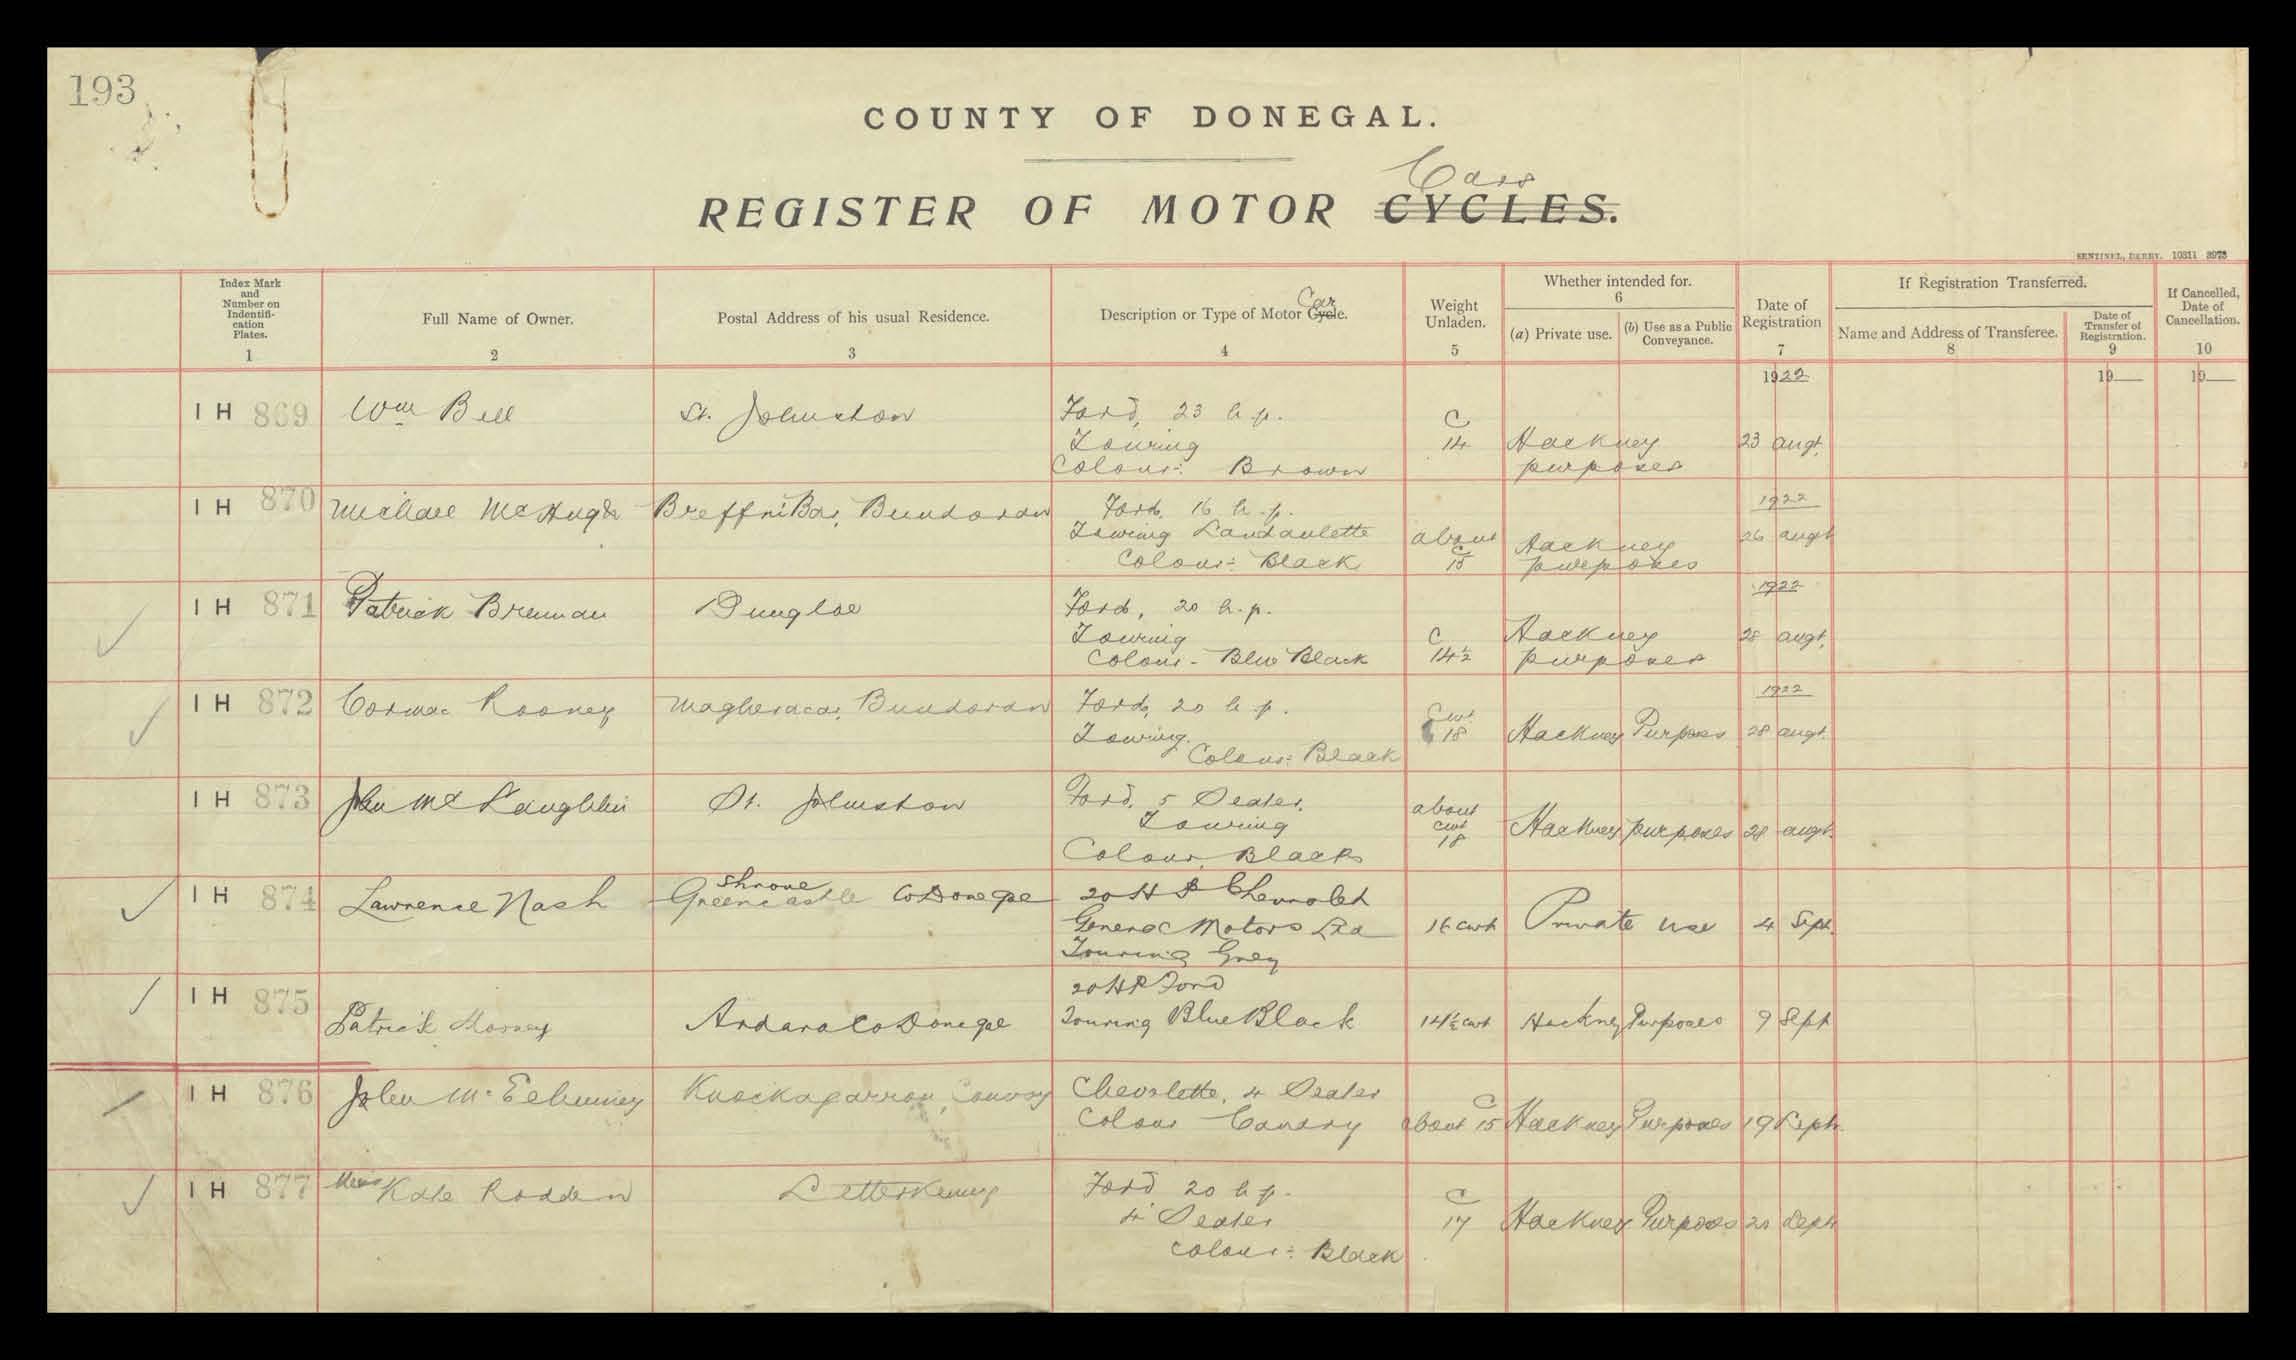 193
COUNTY OF DONEGAL.
Cars
REGISTER OF MOTOR CYCLES.
SENTINEL, DERRY. 10311 3973
Index Mark and Number on Indentifi-cation Plates. 1
Full Name of Owner. 2
Postal Address of his usual Residence. 3
Description or Type of Motor Cycle. Car 4
Weight Unladen. 5
Whether intended for. 6
(a) Private use.
(b) Use as a Public Conveyance.
Date of Registration 7
If Registration Transferred.
Name and Address of Transferee. 8
Date of Transfer of Registration. 9
If Cancelled, Date of Cancellation. 10
1922 19 19
IH 869 Wm Bell St. Johnston Ford, 23 h.p.
Touring
Colour: Brown
C
14
Hackney
purposes
23 augt.
1922
IH 870 Michael McHugh Breffni Bar, Bundoran Ford, 16 h.p.
Touring Landaulette
Colour: Black
about
C
15
Hackney
purposes
26 augt
1922
IH 871 Patrick Brennan Dungloe Ford, 20 h.p.
Touring
Colour - Blue Black
C
14½
Hackney
purposes
28 augt.
1922
IH 872 Cormac Rooney Magheracar, Bundoran Ford, 20 h.p.
Touring.
Colour: Black
Cwt.
18
Hackney Purposes 28 augt.
IH 873 John McLaughlin St. Johnston Ford, 5 Seater,
Touring
Colour, Black
about
cwt
18
Hackney purposes 28 augt.
IH 874 Lawrence Nash Shrove
Greencastle Co Donegal 20 H P Chevrolet
General Motors Ltd
Touring Grey
cwt Private use 4 Sept.
IH 875 Patrick Ardara Co Donegal 20 HP Ford
Touring Blue Black
14½ cwt Hackney Purposes 9 Sept
IH 876 John McElhinney Knockagarron, Convoy Chevolette, 4 Seater
Colour
C
about 15
Hackney Purposes 19 Sept.
IH 877 Miss Kate Rodden Letterkenny Ford 20 h.p.
4 Seater
Colour: Black
C
17
Hackney Purposes 20 Sept